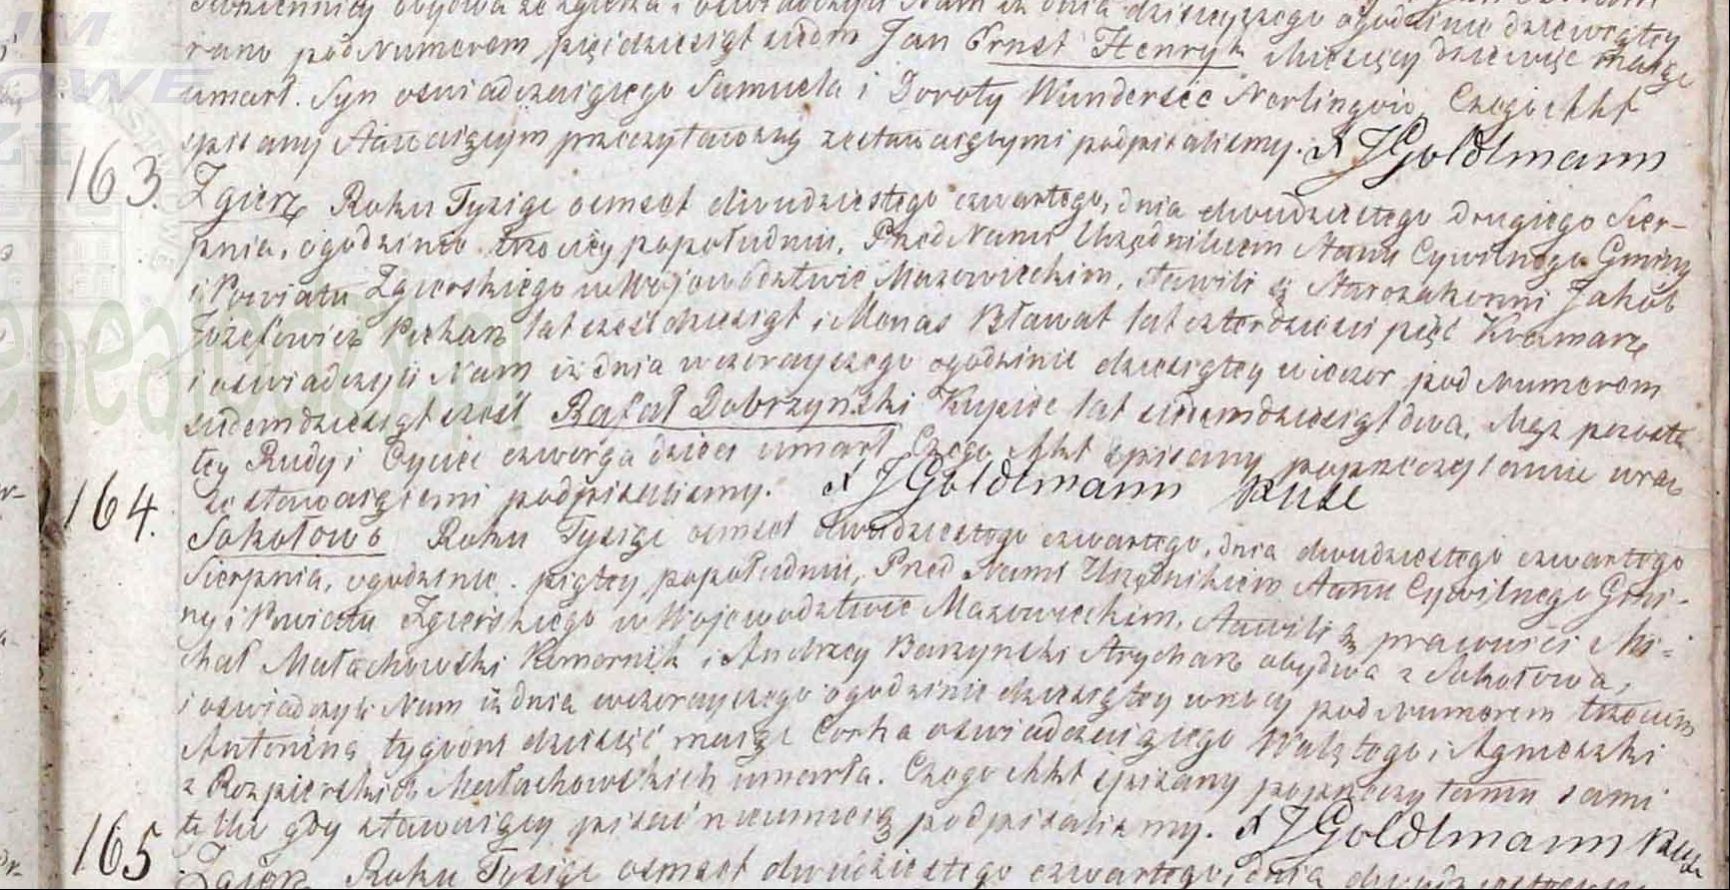 rano pod Numerem pięćdziesiąt siedm Jan Ernst Henryk Miesięcy dziewięć maiąc
umarł. Syn oswiadczaiącego Samuela i Doroty Czego Akt
spisany Stawaiącym przeczytawszy ze stawaiącymi podpisalismy. J Goldlmann
163. Zgierz Roku Tysiąc osmset dwudziestego czwartego, dnia dwudziestego drugiego Sier-
pnia, o godzinie trzeciey popołudniu, Przed Nami Urzędnikiem Stanu Cywilnego Gminy
i Powiatu Zgierskiego w Wojewodztwie Mazowieckim, stawili się Starozakonni Jakób
Jozefowicz Piekarz lat sześćdziesiąt i Monas Bławat lat czterdziesci pięć Kramarz
i oswiadczyli Nam iż dnia wczorayszego o godzinie dziesiątey wieczor pod Numerem
siedmdziesiąt sześć Rafał Dobrzynski Kupiec lat siedmdziesiąt dwa, Mąż pozosta
łey Rudy i Oycie czworga dzieci umarł Czego Akt spisany po przeczytaniu wraz
ze stawaiącemi podpisalismy. J Goldlmann
164. Sokołowo Roku Tysiąc osmset dwudziestego czwartego, dnia dwudziestego czwartego
Sierpnia, o godzinie piątey popołudniu, Przed Nami Urzędnikiem Stanu Cywilnego Gmi-
ny i Powiatu Zgierskiego w Wojewodztwie Mazowieckim, Stawili się pracowici Mi-
chał Małachowski Komornik i Andrzey Barzynski Strycharz obydwa z Sokołowa,
i oswiadczyli Nam iż dnia wczorayszego o godzinie dziesiątey w nocy pod Numerem trzecim
Antonina tygodni dziesięć maiąc Corka oswiadczaiącego i Agnieszki
z Rozpierskich Małachowskich umarła. Czego Akt spisany po przeczytaniu sami
tylko gdy stawaiący pisać nieumieią podpisalismy. J Goldlmann
165 Zgierz Roku Tysiąc osmset dwudziestego czwartego, dnia